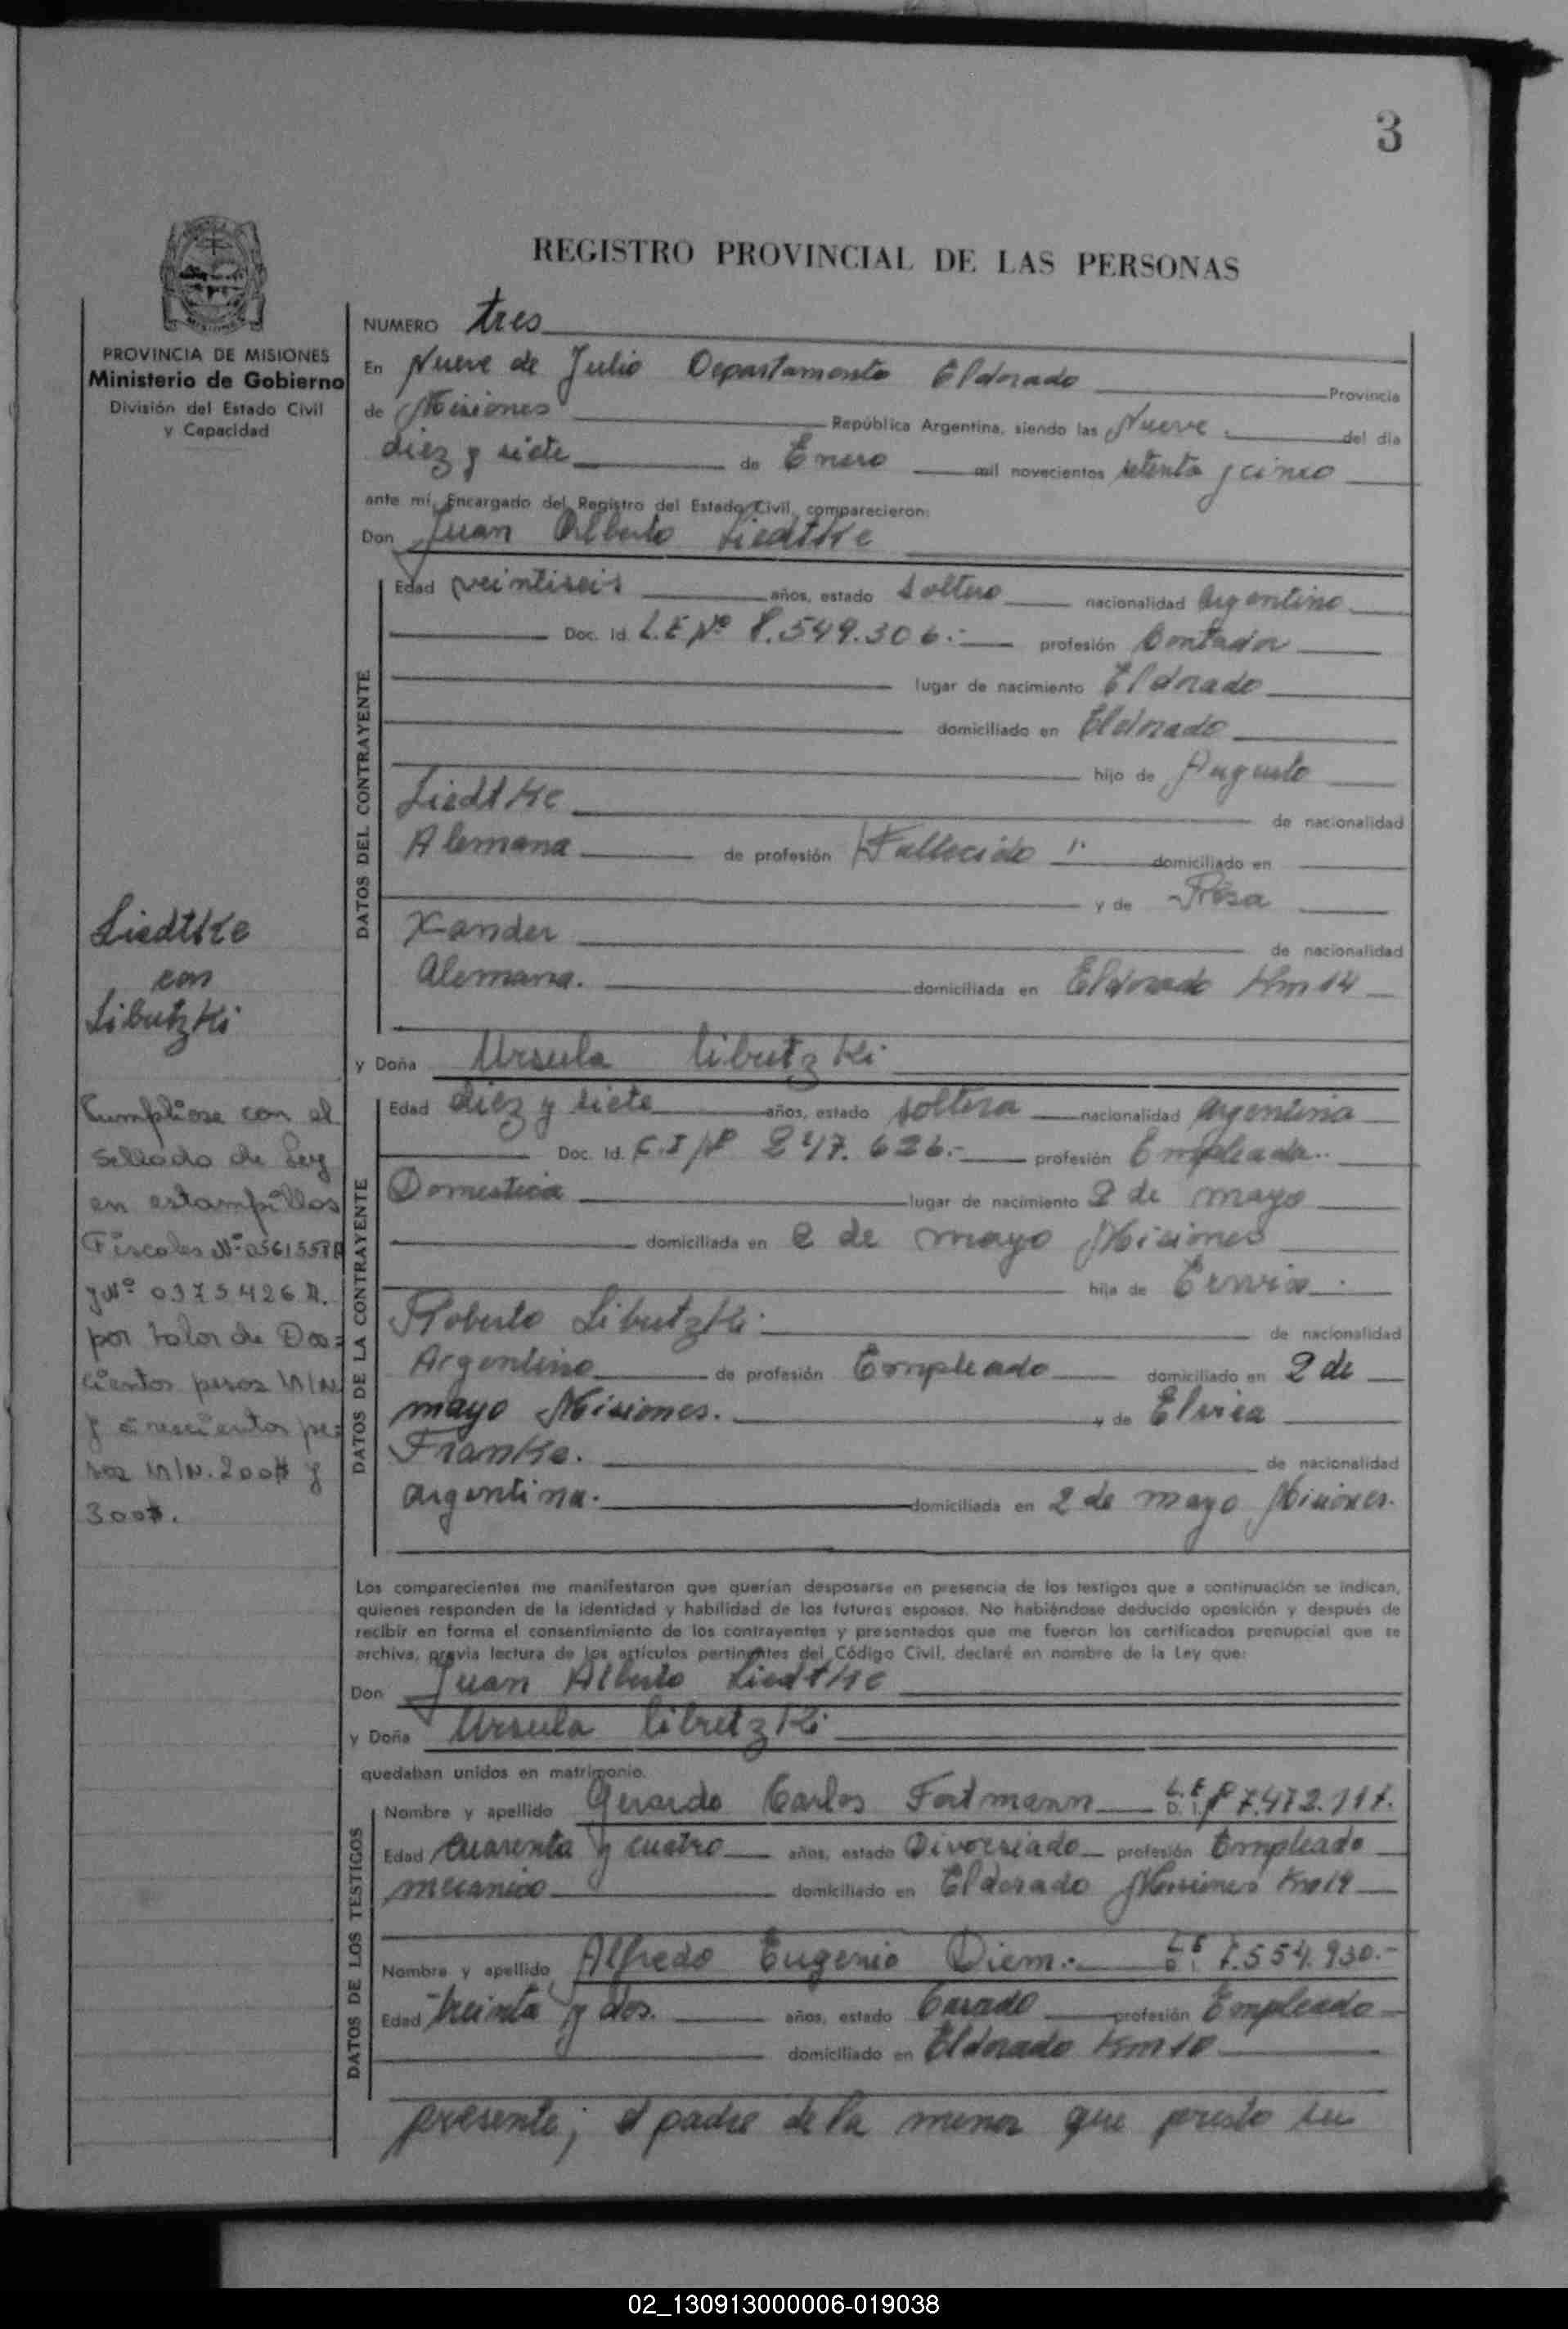 3
REGISTRO PROVINCIAL DE LAS PERSONAS
PROVINCIA DE MISIONES
Ministerio de Gobierno
División del Estado Civil
y Capacidad
NUMERO tres
En Nueve de Julio Departamento Eldorado Provincia
de Misiones República Argentina, siendo las Nueve del día
diez y siete de Enero mil novecientos setenta y cinco
ante mí, Encargado del Registro del Estado Civil, comparecieron:
Don Juan Alberto Liedtke
DATOS DEL CONTRAYENTE
Edad veintiseis años, estado soltero nacionalidad Argentino
Doc. Id. L.E Nº 8.549.306.- profesión Contador
lugar de nacimiento Eldorado
domiciliado en Eldorado
hijo de Augusto
Liedtke de nacionalidad
Alemana de profesión Fallecido domiciliado en
y de Rosa
Xander de nacionalidad
Alemana. domiciliada en Eldorado Km 14
Liedtke
con
Libutzki
y Doña Ursula Libutzki
DATOS DE LA CONTRAYENTE
Edad diez y siete años, estado soltera nacionalidad argentina
Doc. Id. C.I Nº 247.626.- profesión Empleada
Domestica lugar de nacimiento 2 de mayo
domiciliada en 2 de mayo Misiones
hija de Erwin
Roberto Libutzki de nacionalidad
Argentino de profesión Empleado domiciliado en 2 de
mayo Misiones. y de Elvira
Franke. de nacionalidad
argentina. domiciliada en 2 de mayo Misiones.
Cumpliose con el
sellado de Ley
en estampillas
Fiscales Nº 0561558A
y Nº 0375426 A.
por valor de Dos=
cientos pesos M/N
y trescientos pe=
sos M/N. 200$ y
300$.
Los comparecientes me manifestaron que querían desposarse en presencia de los testigos que a continuación se indican,
quienes responden de la identidad y habilidad de los futuros esposos. No habiéndose deducido oposición y después de
recibir en forma el consentimiento de los contrayentes y presentados que me fueron los certificados prenupcial que se
archiva, previa lectura de los artículos pertinentes del Código Civil, declaré en nombre de la Ley que:
Don Juan Alberto Liedtke
y Doña Ursula Libutzki
quedaban unidos en matrimonio.
DATOS DE LOS TESTIGOS
Nombre y apellido Gerardo Carlos Fortmann L.E D. I. Nº 7.472.117.
Edad cuarenta y cuatro años, estado Divorsiado profesión Empleado
mecanico domiciliado en Eldorado Misiones Km 14
Nombre y apellido Alfredo Eugenio Diem.- L.E D. I. 7.554.930.-
Edad treinta y dos. años, estado Casado profesión Empleado
domiciliado en Eldorado Km 10
presente; el padre de la menor que presto su
02_130913000006-019038